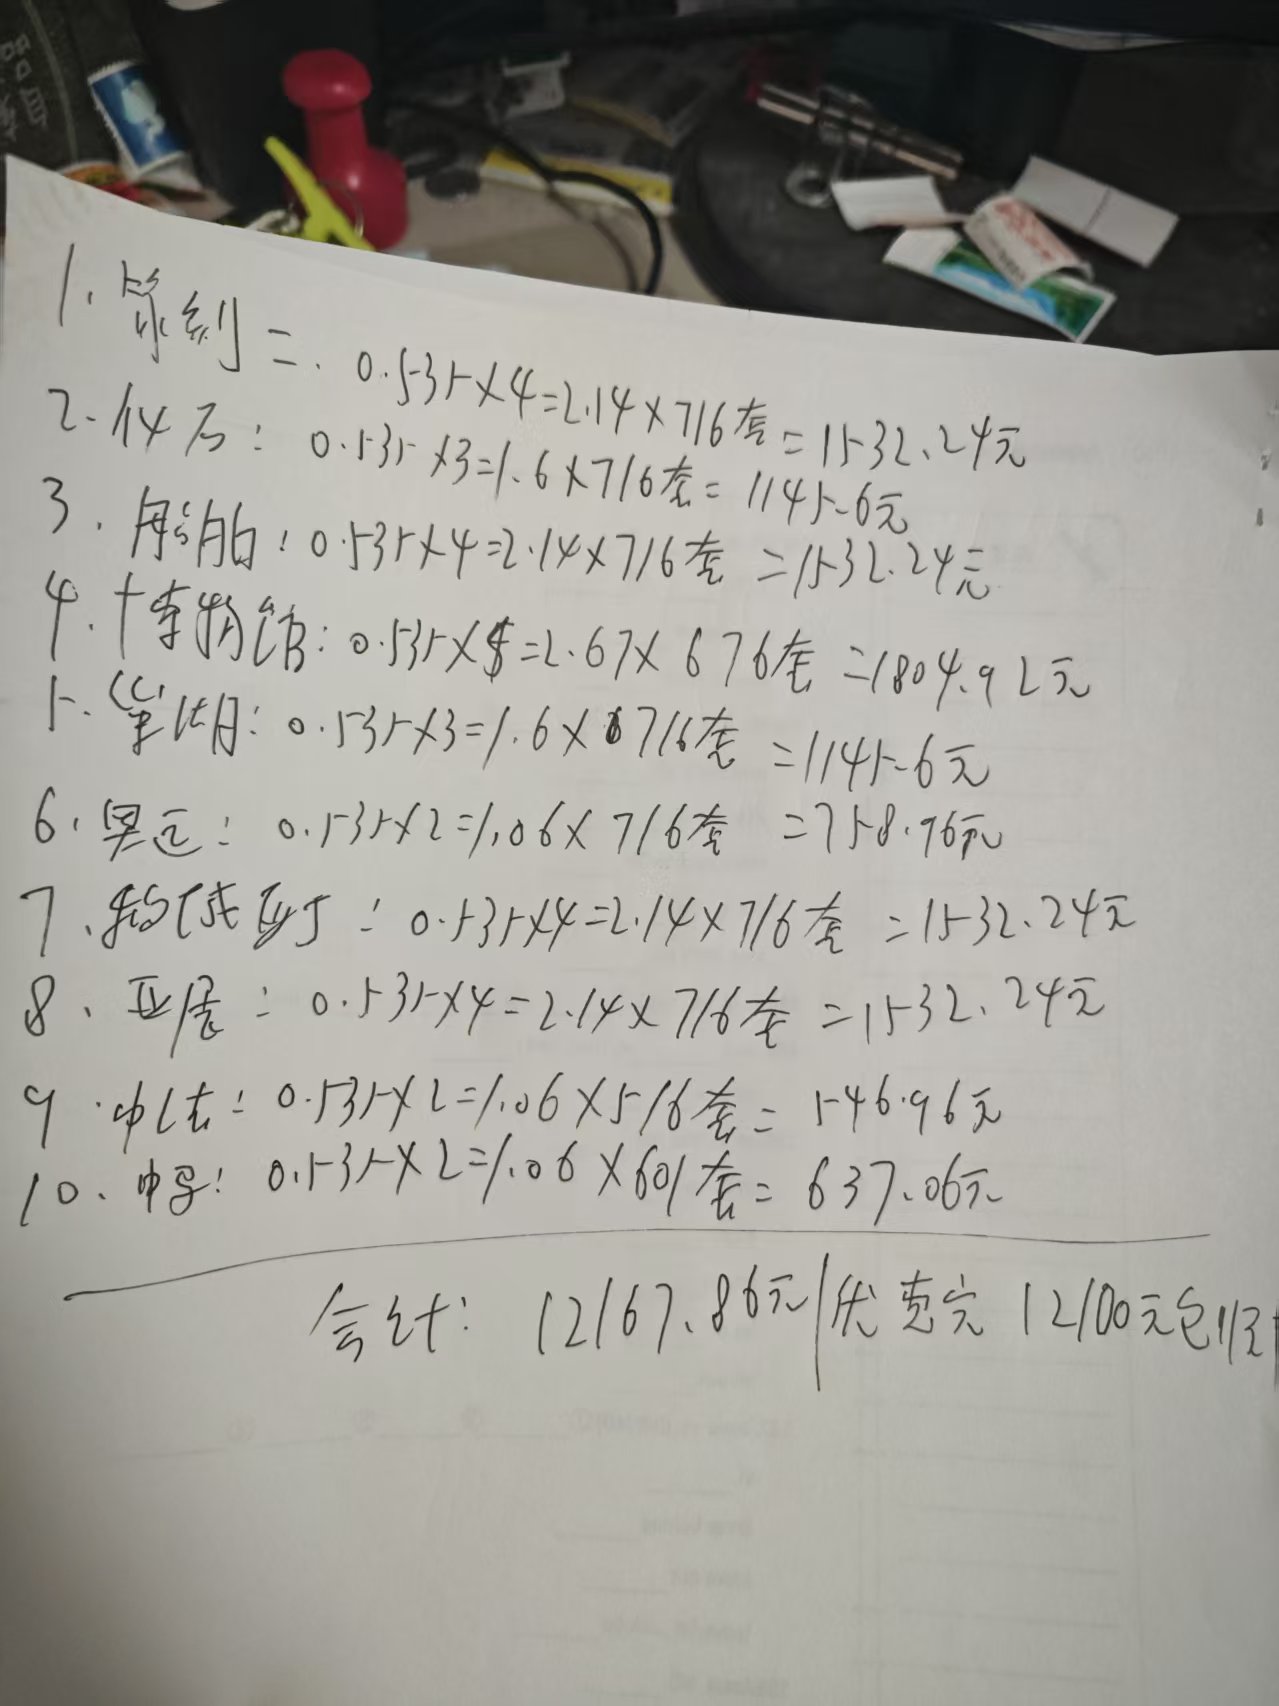 1. 篆刻: 0.535×4=2.14×716套=1532.24元
2. 化石: 0.535×3=1.6×716套=1145.6元
3. 船舶: 0.535×4=2.14×716套=1532.24元
4. 博物馆: 0.535×5=2.67×676套=1804.92元
5. 0.535×3=1.6×716套=1145.6元
6. 奥运: 0.535×2=1.06×716套=758.96元
7. 0.535×4=2.14×716套=1532.24元
8. 亚展: 0.535×4=2.14×716套=1532.24元
9. 中法: 0.535×2=1.06×516套=546.96元
10. 0.535×2=1.06×601套=637.06元
合计: 12167.86元/优惠完12100元包